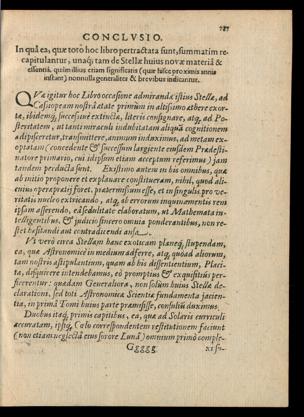 787
CONCLVSIO.
In quâ ea, quæ toto hoc libro pertractata sunt, summatim re-
capitulantur, unaq́; tam de Stellæ huius novæ materiâ &
essentiâ, quàm illius etiam significatis (quæ fusce proximis annis
instant) nonnulla generaliter & breviter indicantur.
QVæ igitur hoc Libro occasione admirandæ istius Stellæ, ad
Cassiopeam nostrâ ætate primùm in altissimo æthere exor-
tæ, ibidemq́; successivè extinctæ, literis consignare, atq́; ad Po-
steritatem, ut tanti miraculi indubitatam aliquâ cognitionem
adipisceretur, transmittere, animum induximus, ad metam ex-
optatam (concedente & successum largiente eiusdem Prædesti-
natore primario, cui id ipsum etiam acceptum referimus) jam
tandem perducta sunt. Existimo autem in his omnibus, quæ
ab initio proponere et explanare constitueram, nihil, quod ali-
cuius operæ pretij foret, prætermissum esse, et in singulis pro ve-
ritatis nucleo extricando, atq́; ab errorum inquinamentis rem
ipsam asserendo, eâ sedulitate elaboratum, ut Mathemata in-
telligentibus, & judicio sincero omnia ponderantibus, non re-
stet hæsitandi aut contradicendi ansa.
Vt verò circa Stellam hanc exoticam planeq́; stupendam,
ea, quæ Astronomicè in medium adferre, atq́; quoad aliorum,
tam nostris astipulantium, quàm ab his dissentientium, Placi-
ta, disquirere intendebamus, eò promptius & exquisitiùs per-
ficerentur: quædam Generaliora, non solùm huius Stellæ de-
clarationi, sed toti Astronomicæ Scientiæ fundamenta jacien-
tia, in primâ Tomi huius parte præmisisse, consultũ duximus.
Duobus itaq́; primis capitibus, ea, quæ ad Solaris curriculi
accuratam, ipsiq́; Cælo correspondentem restitutionem faciunt
(non etiam neglectâ eius sorore Lunâ) omnium primò comple-
Ggggg xi su-